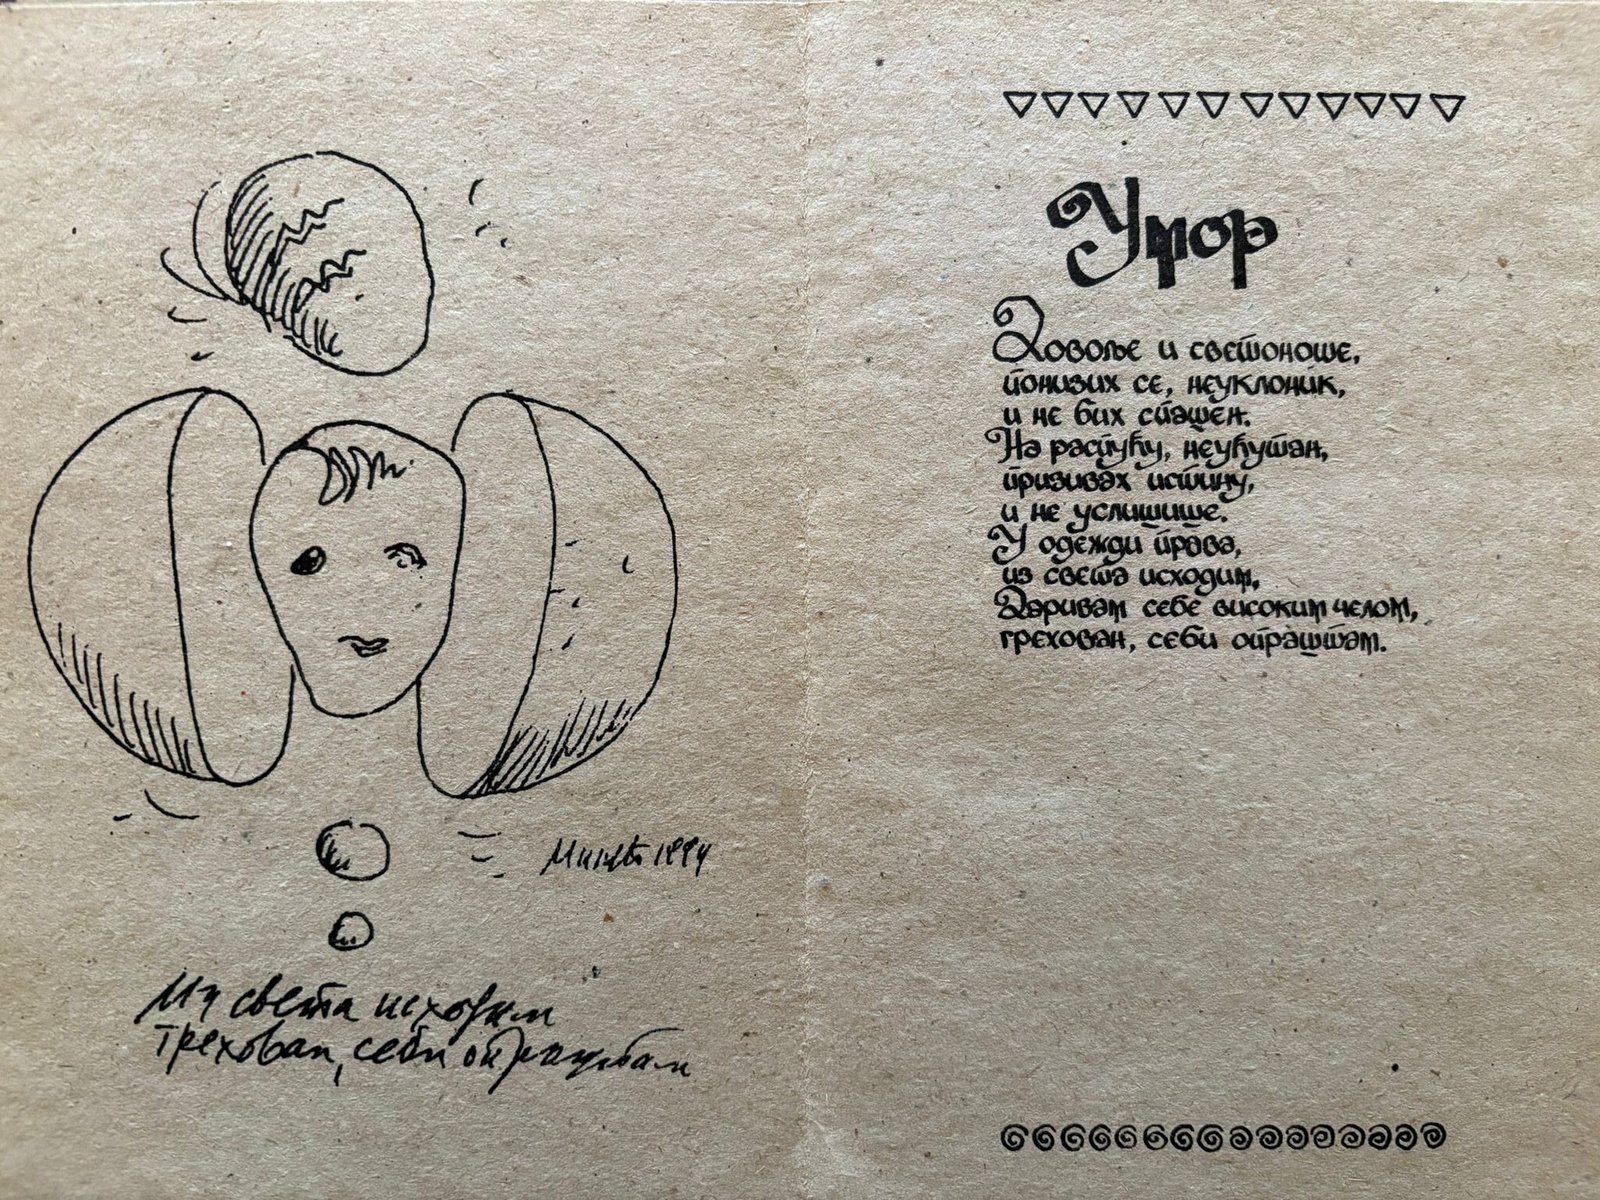 Из света исходим
грехован, себи опраштам
1994
Умор
Довоље и светоноше,
понизих се, неуклоник,
и не бих спашен.
На распућу, неућутан,
призивах истину,
и не услишише.
У одежди права,
из света исходим,
Даривам себе високим челом,
грехован, себи опраштам.